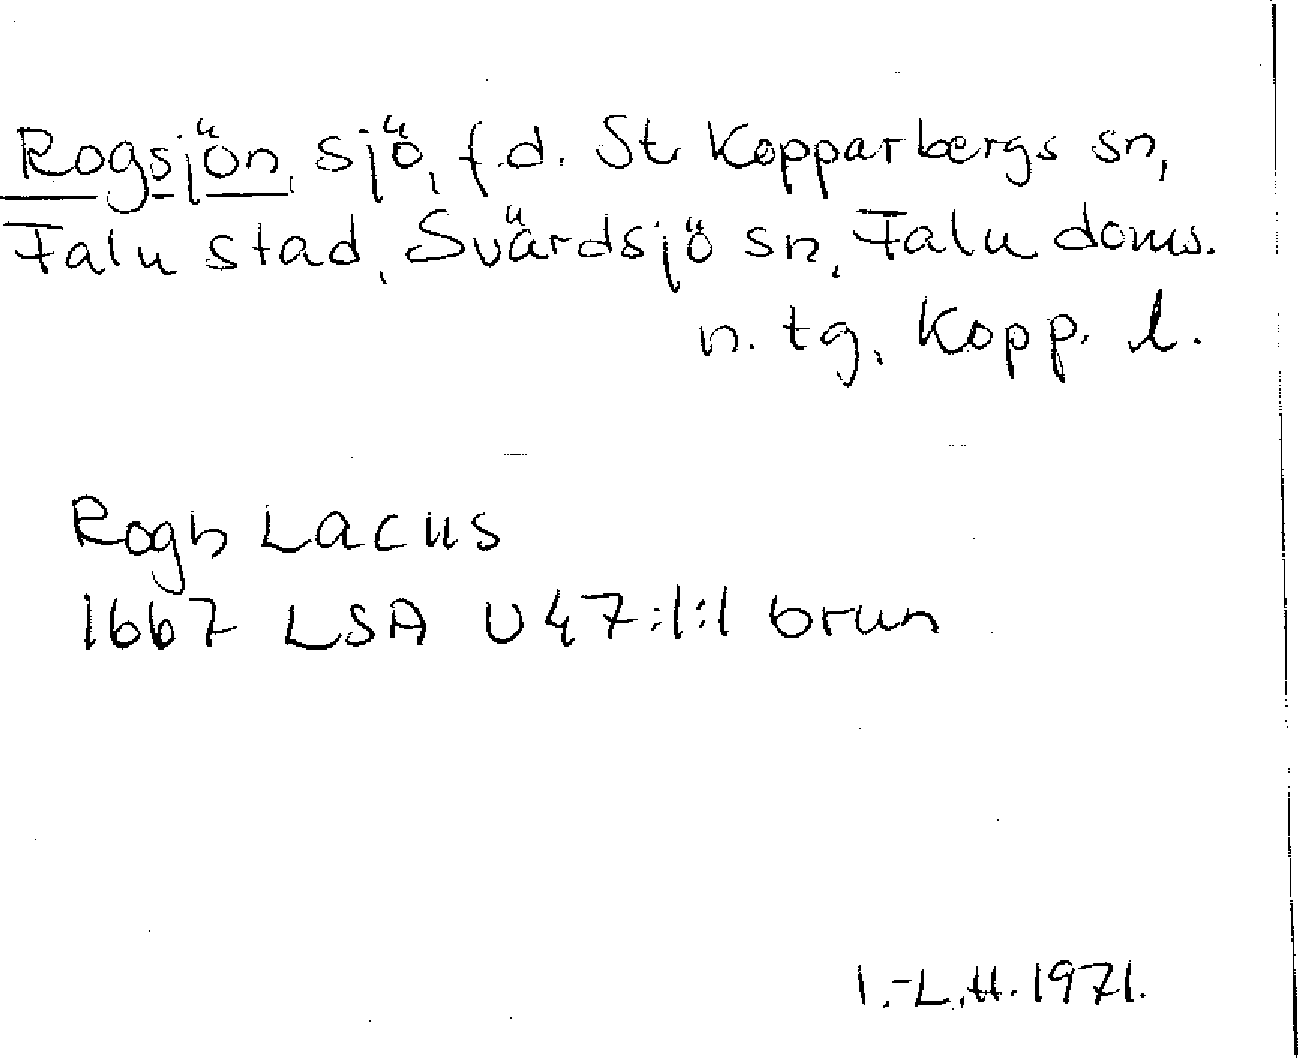 Rogsjön, sjö, f.d. St. Kopparbergs sn,
Falu stad, Svärdsjö sn, Falu doms.
n. tg, Kopp. l.
Rogh Lacus
1667 LSA U47:1:1 brun
I.-L.H. 1971.